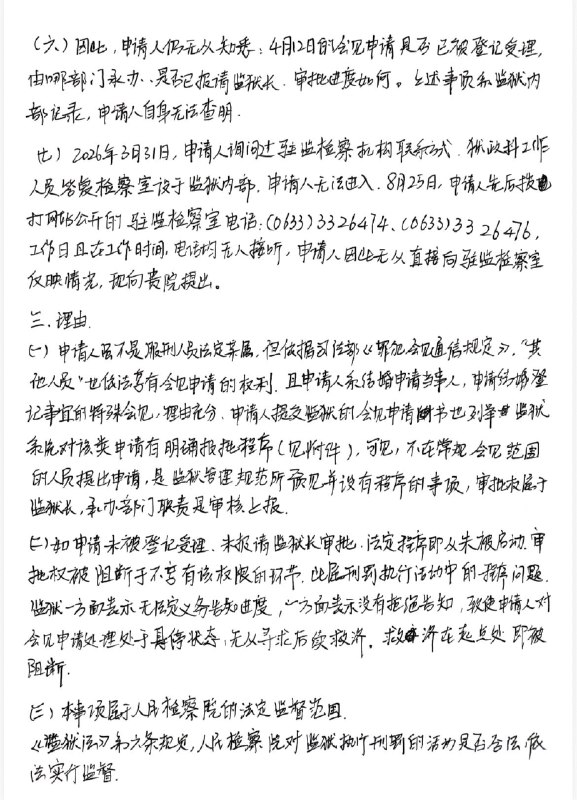 (六) 因此,申请人仍无从知悉:4月12日的会见申请是否已被登记受理,
由哪部门承办、是否已报请监狱长、审批进度如何。上述事项系监狱内
部记录,申请人自身无法查明.
(七) 2026年3月31日,申请人询问过驻监检察机构联系方式.狱政科工作
人员答复检察室设于监狱内部.申请人无法进入.8月25日,申请人先后拨
打网站公开的驻监检察室电话:(0633)3326474、(0633)3326476,
工作日且在工作时间,电话均无人接听,申请人因此无从直接向驻监检察室
反映情况,现向贵院提出。
三.理由.
(一) 申请人虽不是服刑人员法定亲属,但依据司法部《罪犯会见通信规定》,"其
他人员"也依法享有会见申请的权利.且申请人系结婚申请当事人,申请结婚登
记事宜的特殊会见,理由充分.申请人提交监狱的会见申请书也列举监狱
系统对该类申请有明确报批程序(见附件),可见,不在常规会见范围
的人员提出申请,是监狱管理规范所预见并设有程序的事项,审批权属于
监狱长,承办部门职责是审核上报.
(二) 如申请未被登记受理、未报请监狱长审批.法定程序即从未被启动.审
批权被阻断于不享有该权限的环节.此属刑罚执行活动中的程序问题.
监狱一方面表示无法定义务告知进度,一方面表示没有拒绝告知,致使申请人对
会见申请处理处于悬停状态,无从寻求后续救济。救济在起点处即被
阻断.
(三) 本事项属于人民检察院的法定监督范围.
《监狱法》第六条规定,人民检察院对监狱执行刑罚的活动是否合法依
法实行监督.